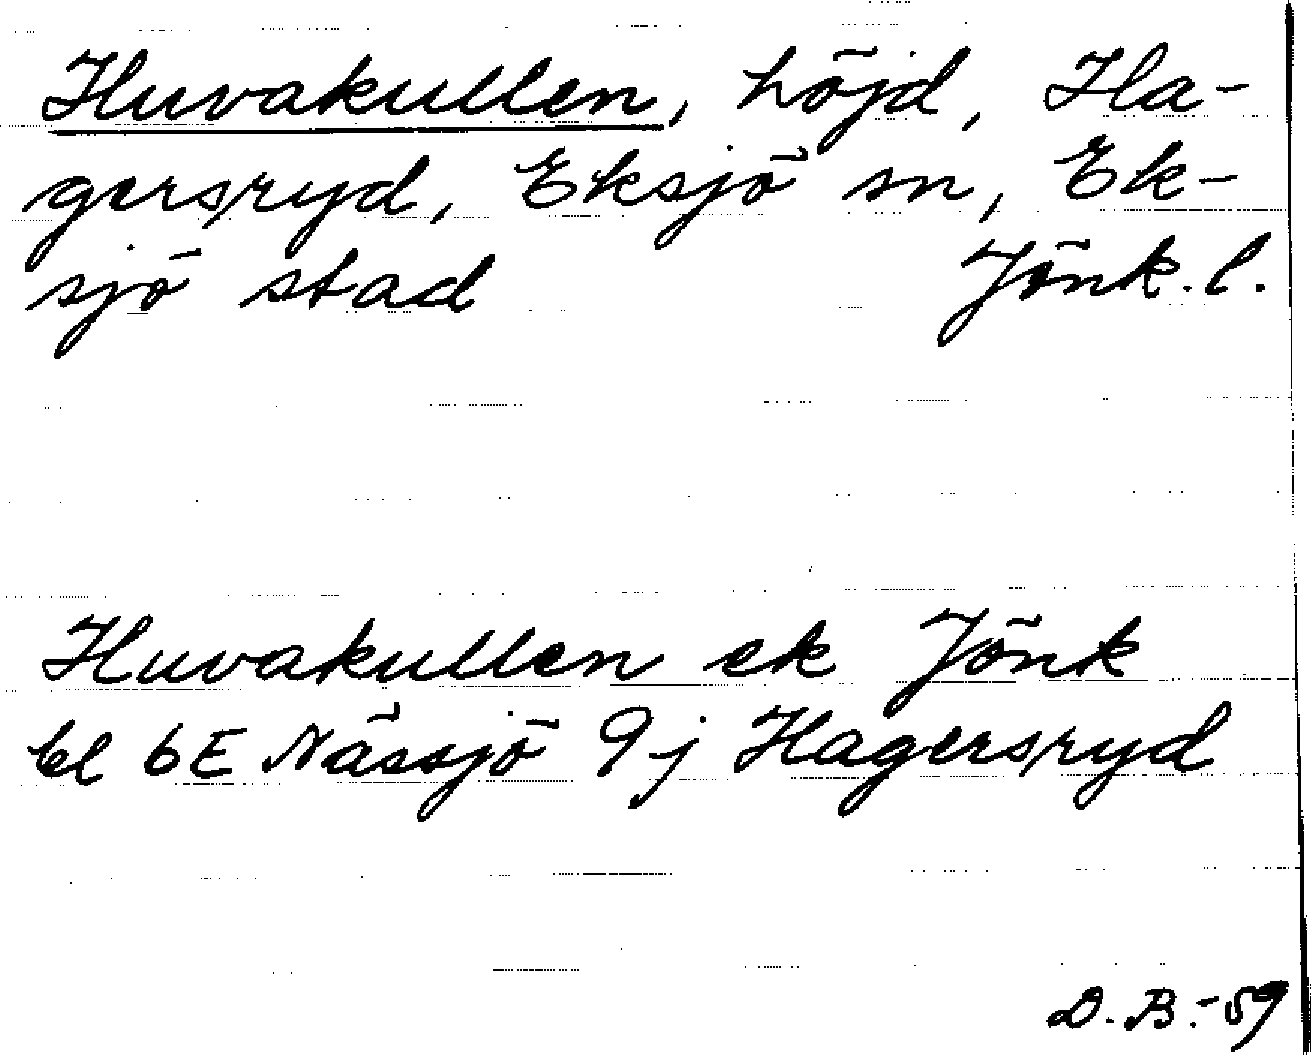 Huvakullen, höjd, Ha-
gersryd, Eksjö sn, Ek-
sjö stad Jönk.l.
Huvakullen ek Jönk
bl 6E Nässjö 9j Hagersryd
D.B.-59